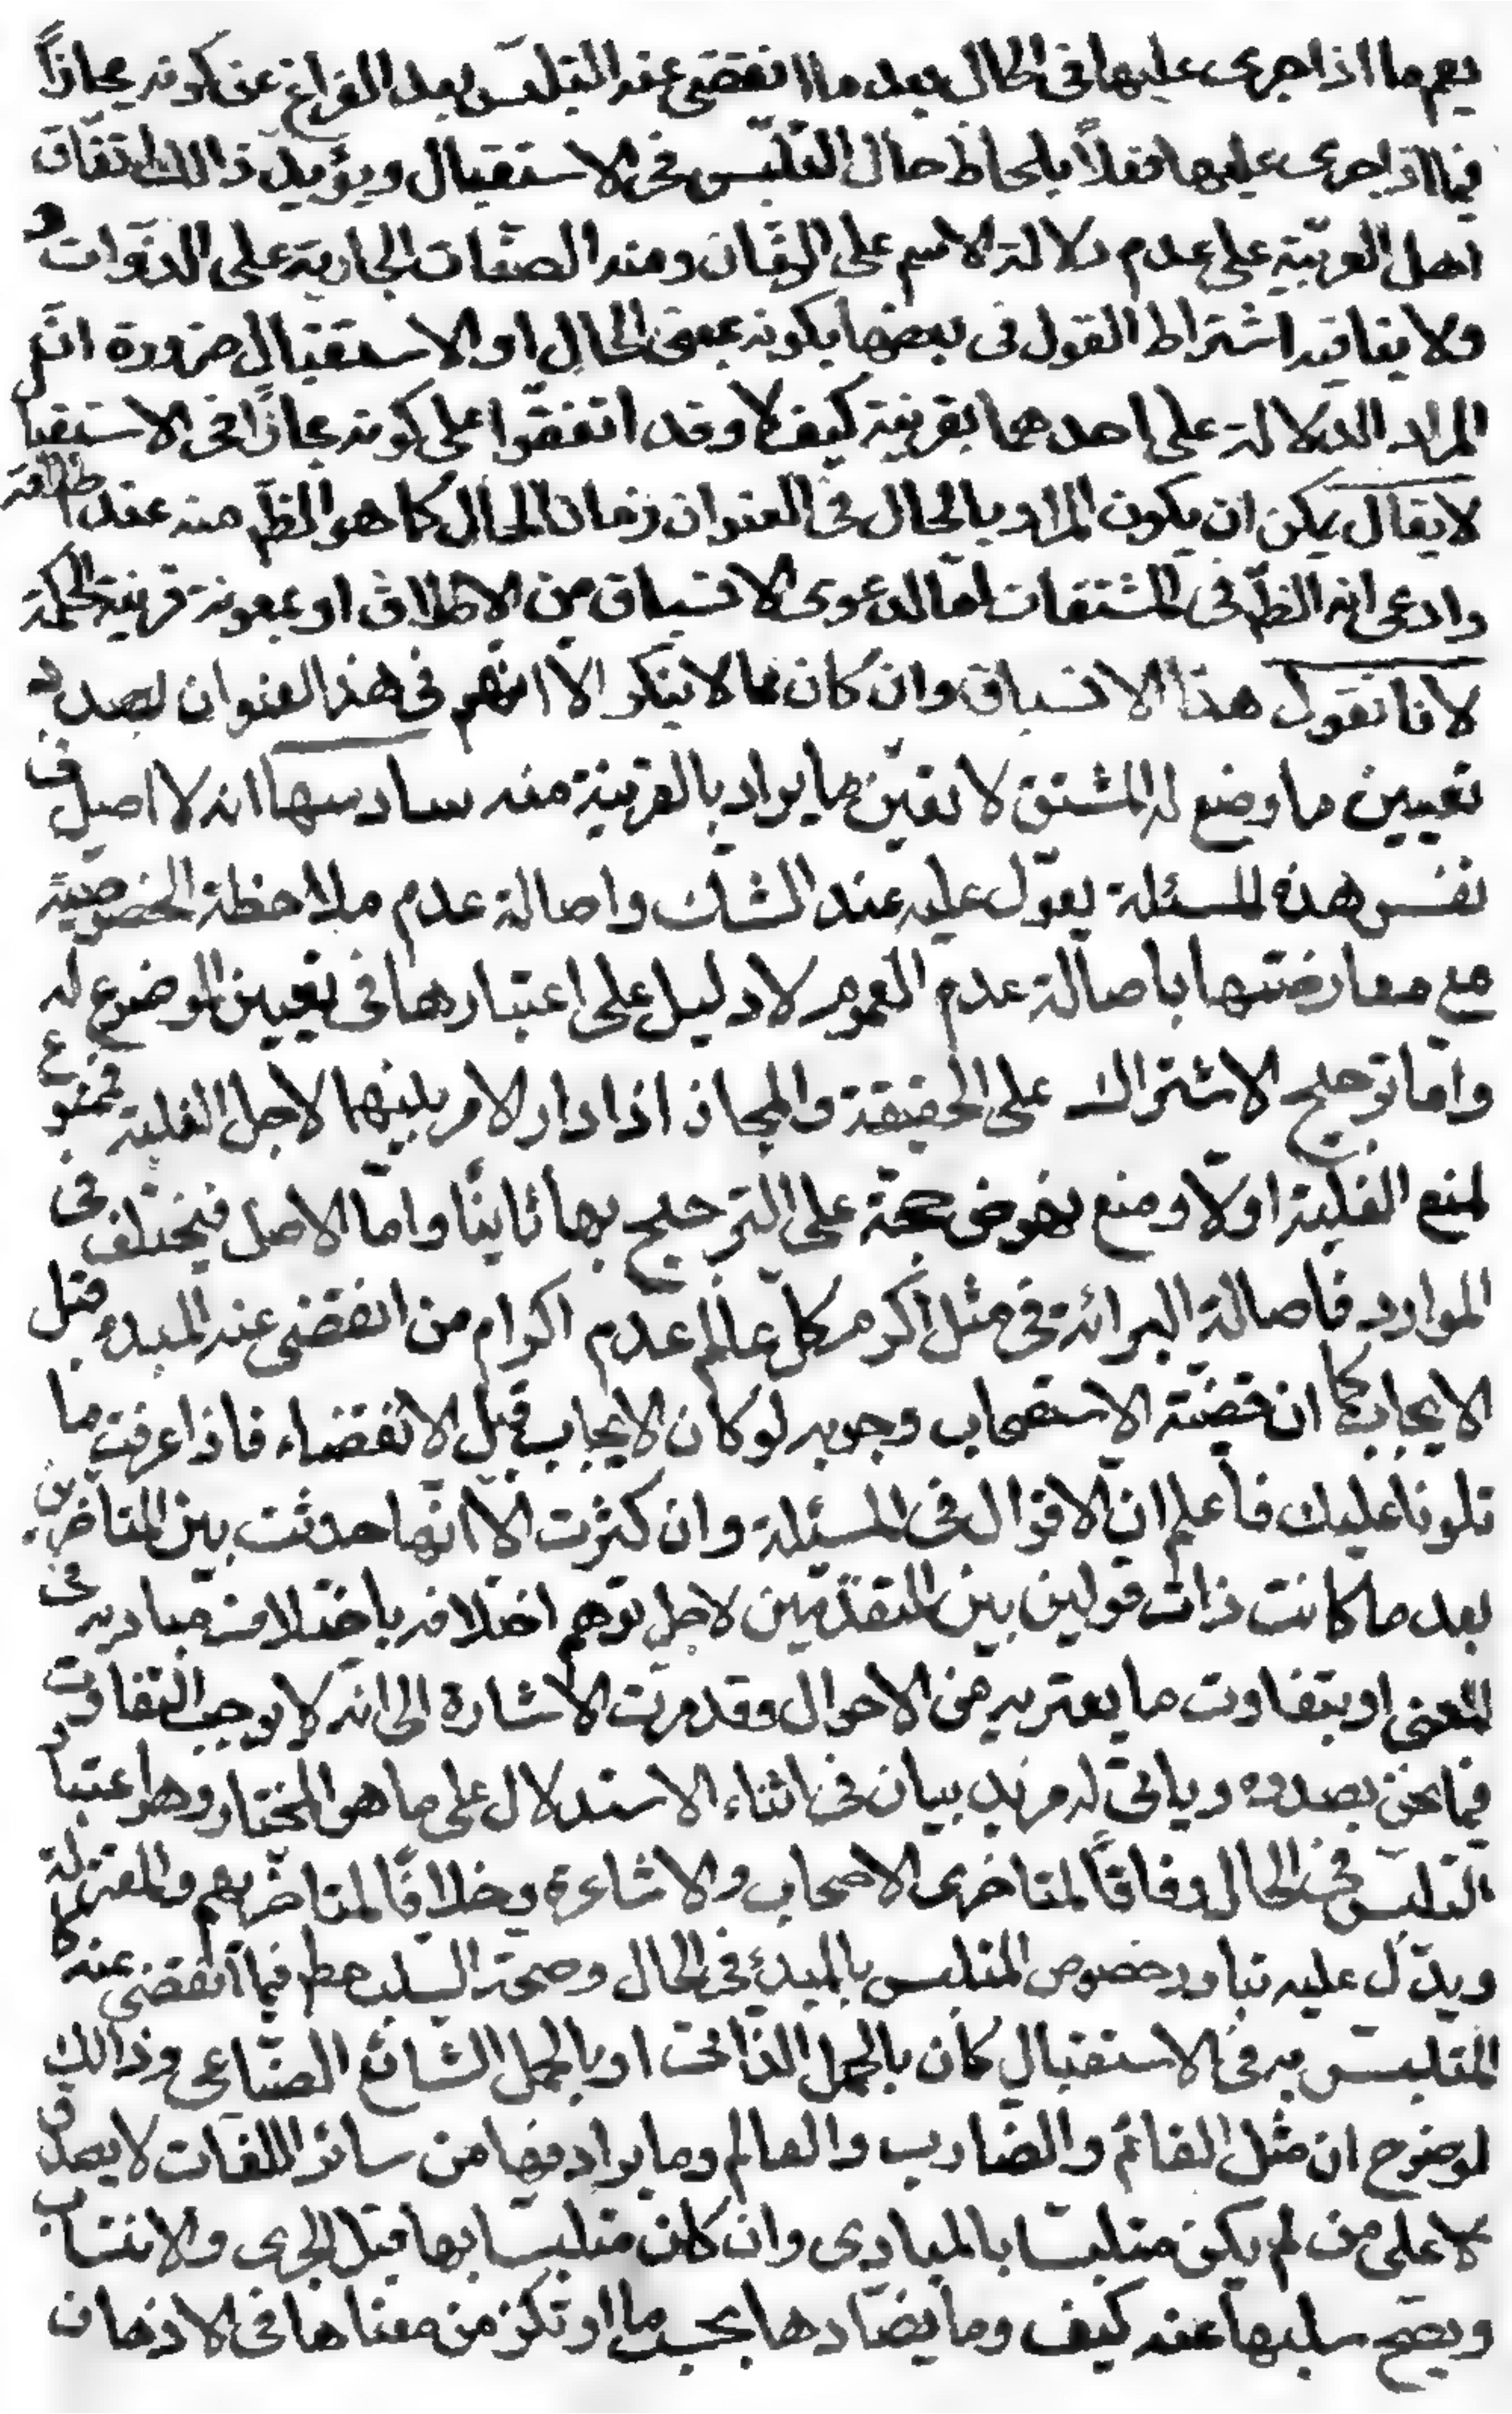 يعم ما اذا جرى عليها فى الحال بعد ما انقضى عنه التلبّس بعد الفراغ عن كونه مجازاً
فيما اذا جرى عليها فعلاً بلحاظ حال التلبّس فى الاستقبال ويؤيد ذالك اتفاق
اهل العربيّة على عدم دلالة الاسم على الزّمان ومنه الصفات الجارية على الذوات
ولا ينافيه اشتراط القول فى بعضها بكونه بمعنى الحال او الاستقبال ضرورة انّ
المراد الدّلالة على احدهما بقرينة كيف لا وقد اتفقوا على كونه مجازاً فى الاستقبا
لا يقال يمكن ان يكون المراد بالحال فى العنوان زمان الحال كما هو الظّ منه عند اطلاقه
وادعى انه الظّ فى المشتقات امّا لدعوى الانسباق من الاطلاق او بمعونة قرينة الحكمة
لانا نقول هذا الانسباق وان كان مما لا ينكر الّا انّهم فى هذا العنوان بصدد
تعيين ما وضع له المشتق لا تعيّن ما يراد بالقرينة منه سادسها انه لا اصل فى
نفس هذه المسئلة يعوّل عليه عند الشك واصالة عدم ملاحظة الخصوصيّة
مع معارضتها باصالة عدم العموم لا دليل على اعتبارها فى تعيين الموضوع له
وامّا ترجيح الاشتراك على الحقيقة والمجاز اذا دار الامر بينهما لاجل الغلبة فممنوع
لمنع الغلبة اولاً ومنع نهوض حجّة على الترجيح بها ثانيًا وامّا الاصل فيختلف فى
الموارد فاصالة البرائة فى مثل اكرم كلّ عالم عدم اكرام من انقضى عنه المبدء قبل
الايجاب كما ان قضيّة الاستصحاب وجوبه لو كان الايجاب قبل الانقضاء فاذا عرفت ما
تلونا عليك فاعلم انّ الاقوال فى المسئلة وان كثرت الّا انّها حدثت بين المتاخرين
بعد ما كانت ذات قولين بين المتقدّمين لاجل توهم اختلافه باختلاف مباديه فى
المعنى او بتفاوت ما يعتريه من الاحوال وقد مرت الاشارة الى انه لا يوجب التفاوت
فيما نحن بصدده وياتى له مزيد بيان فى اثناء الاستدلال على ما هو المختار وهو اعتبار
التلبّس فى الحال وفاقًا لمتاخرى الاصحاب والاشاعرة وخلافًا لمتاخريهم والمعتزلة
ويدّل عليه تبادر خصوص المتلبس بالمبدء فى الحال وصحة السّلب مط فيما انقضى عنه كا
المتلبّس به فى الاستقبال كان بالحمل الذاتى او بالحمل الشائع الصّناعى وذالك
لوضوح ان مثل القائم والضّارب والعالم وما يرادفها من سائر اللغات لا يصدق
لا على من لم يكن متلبسًا بالمبادى وان كان متلبسا بها قبل الجرى والانتساب
ويصح سلبها عنه كيف وما يضادها بحسب ما ارتكز من معناها فى الاذهان